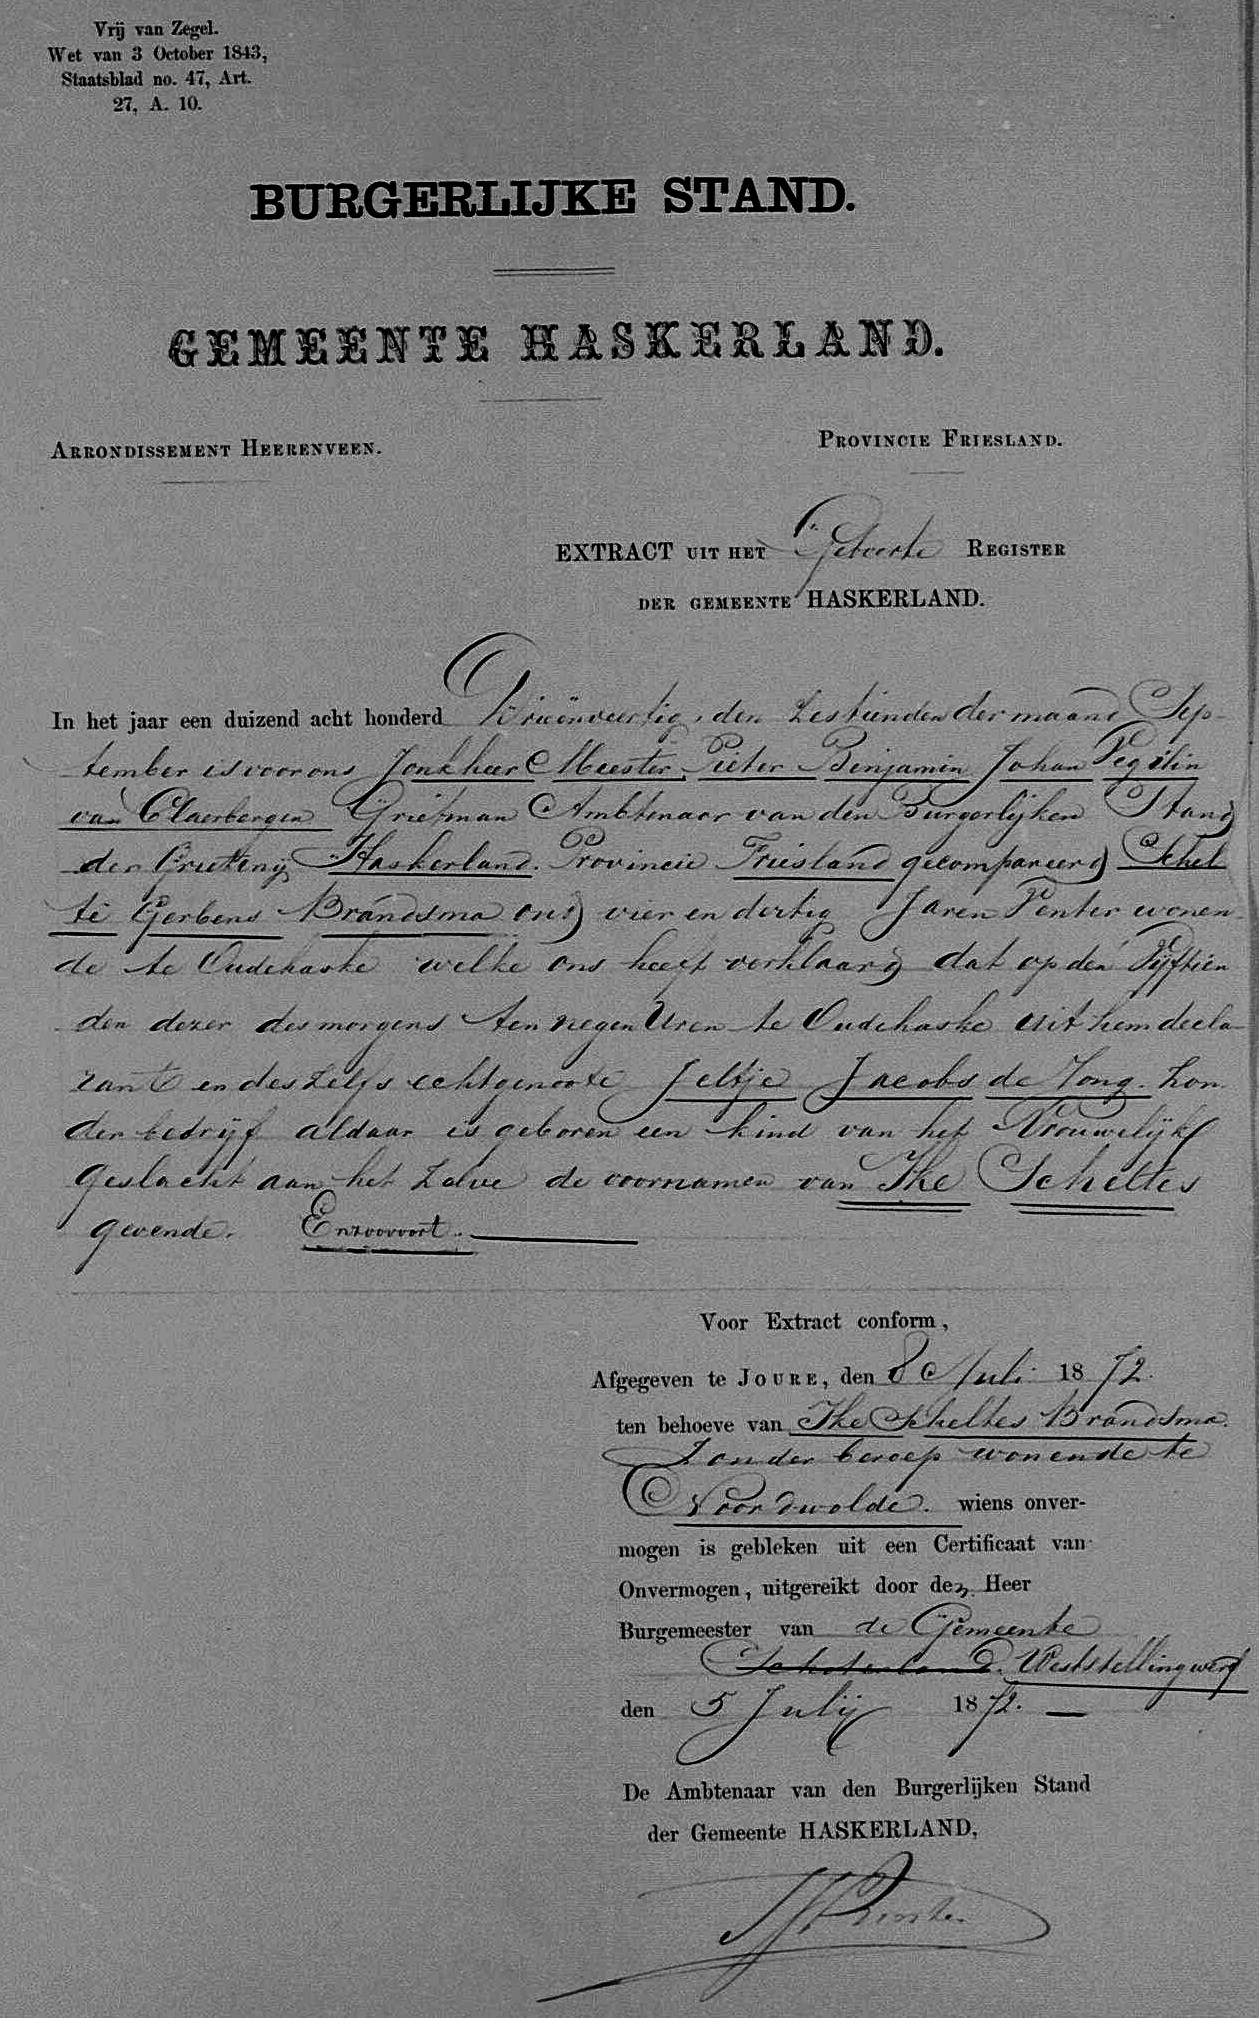 Vrij van Zegel.
Wet van 3 October 1843,
Staatsblad no. 47, Art.
27, A. 10.
BURGERLIJKE STAND.
GEMEENTE HASKERLAND.
ARRONDISSEMENT HEERENVEEN.
PROVINCIE FRIESLAND.
EXTRACT UIT HET Geboorte REGISTER
DER GEMEENTE HASKERLAND.
In het jaar een duizend acht honderd Drieënveertig, den Zestienden der maand Sep-
tember is voor ons Jonkheer Meester Pieter Benjamin Johan Vegilin
van Claerbergen Grietman Ambtenaar van den Burgerlijken Stand
der Grietenij Haskerland. Provincie Friesland gecompareerd Schel
te Gerbens Brandsma oud vier en dertig Jaren Venter wonen-
de te Oudehaske welke ons heeft verklaard dat op den Vijftien
den dezer des morgens ten negen Uren te Oudehaske uit hem decla-
rant en deszelfs echtgenoote Jeltje Jacobs de Jong. zon
der bedrijf aldaar is geboren een kind van het Vrouwelijk
geslacht aan het zelve de voornamen van Ike Scheltes
gevende. Enzoovoort.
Voor Extract conform,
Afgegeven te JOURE, den 8 Juli 1872.
ten behoeve van Ike Scheltes Brandsma.
Zonder beroep wonende te
Noordwolde. wiens onver-
mogen is gebleken uit een Certificaat van
Onvermogen, uitgereikt door den Heer
Burgemeester van de Gemeente
Schoterland. Weststellingwerf
den 5 Julij 1872.
De Ambtenaar van den Burgerlijken Stand
der Gemeente HASKERLAND,